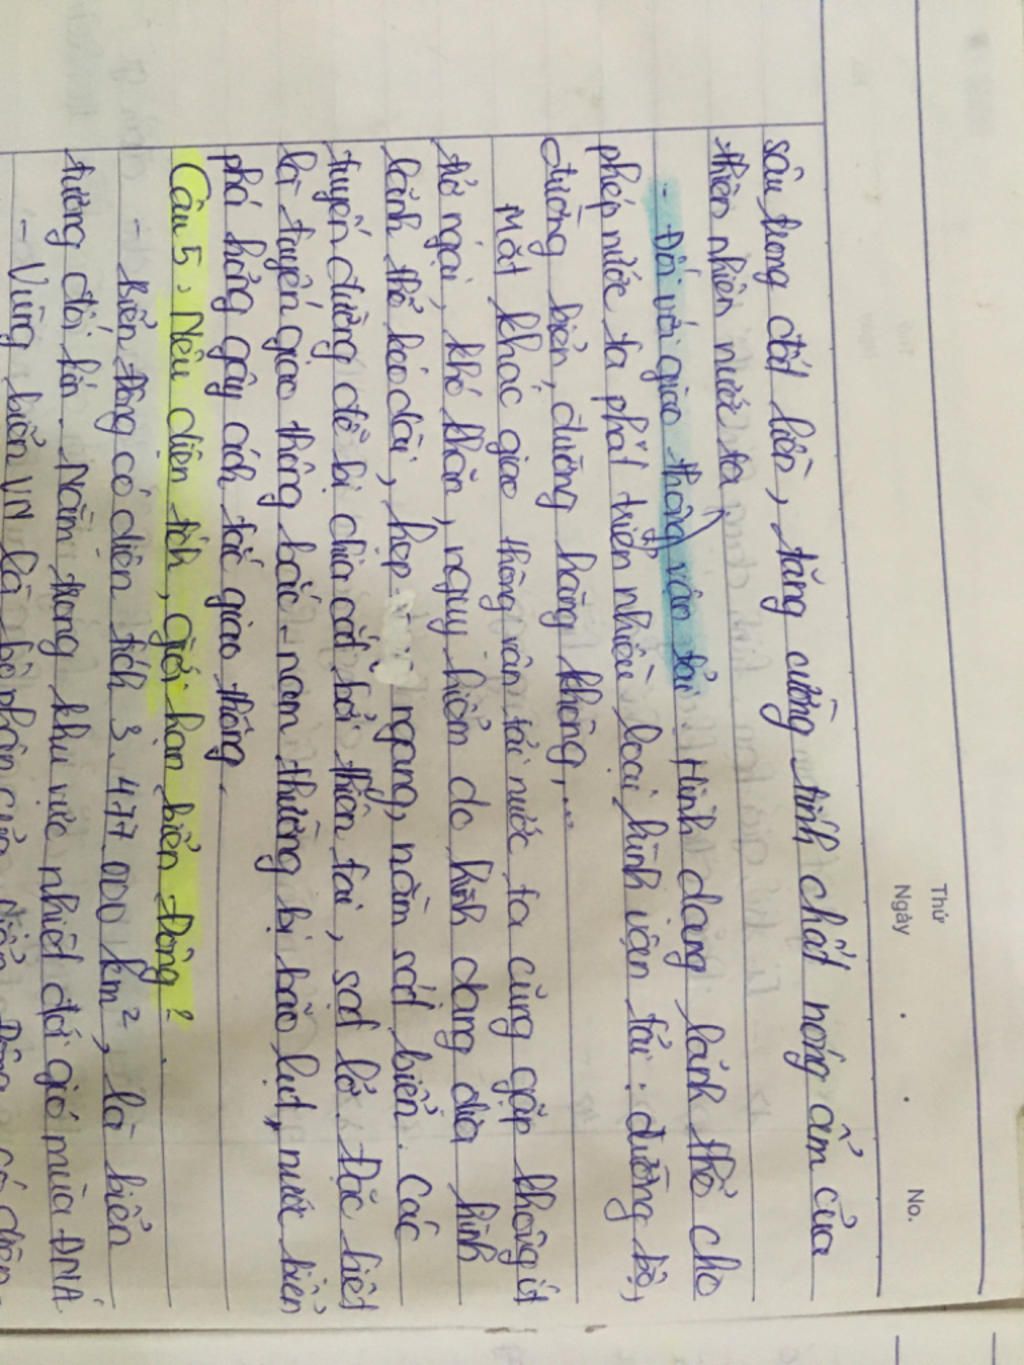 Thứ
Ngày
No.
sâu trong đất liền, tăng cường tính chất nóng ẩm của
thiên nhiên nước ta
- Đối với giao thông vận tải: Hình dạng lãnh thổ cho
phép nước ta phát triển nhiều loại hình vận tải: đường bộ,
đường biển, đường hàng không,...
Mặt khác giao thông vận tải nước ta cũng gặp không ít
trở ngại, khó khăn, nguy hiểm do hình dạng địa hình
lãnh thổ kéo dài, hẹp ngang, nằm sát biển. Các
tuyến đường dễ bị chia cắt bởi thiên tai, sạt lở. Đặc biệt
là tuyến giao thông bắc - nam thường bị bão lụt, nước biển
phá hỏng gây ách tắc giao thông.
Câu 5: Nêu diện tích, giới hạn biển Đông?
- Biển Đông có diện tích 3.477.000 km², là biển
tương đối kín. Nằm trong khu vực nhiệt đới gió mùa ĐNÁ.
- Vùng biển VN là bộ phận của Biển Đông có diện